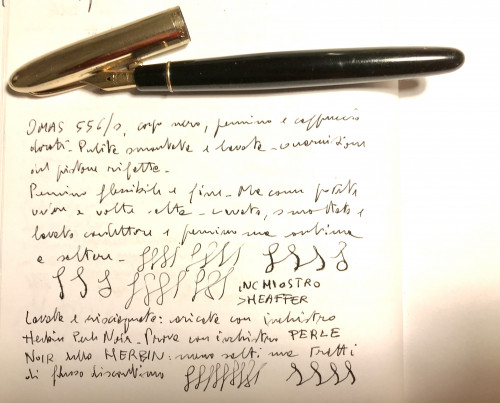 OMAS 556/S, corpo nero, pennino e cappuccio
dorati. Pulita smontata e lavata - guarnizione
del pistone rifatta.
Pennino flessibile e fine. Ma come potete
vedere a volte salta - lavato, smontato e
lavato conduttore e pennino ma continua
a saltare.
INCHIOSTRO
SHEAFFER
Lavata e risciacquata: caricata con inchiostro
Herbin Perle Noir. Prova con inchiostro PERLE
NOIR della HERBIN: meno salti ma tratti
di flusso discontinuo